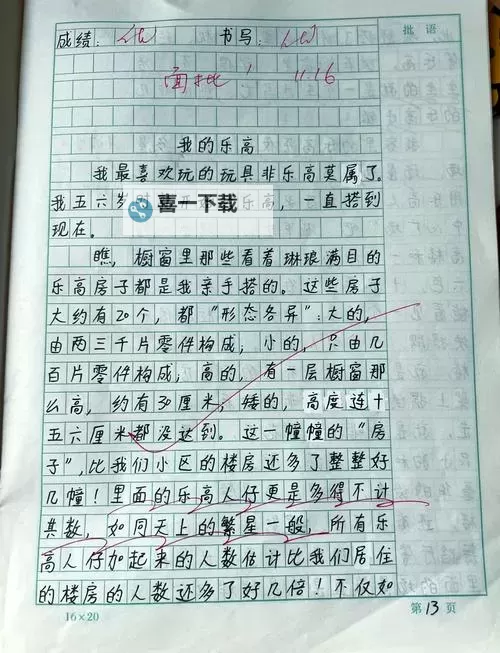 批语
成绩: 书写:
面批! 11.16
我的乐高
我最喜欢玩的玩具非乐高莫属了。
我五六岁 高，一直搭到
喜一下载
现在。
瞧，橱窗里那些看着琳琅满目的
乐高房子都是我亲手搭的。这些房子
大约有20个，都“形态各异”:大的，
由两三千片零件构成；小的，只由几
百片零件构成；高的，有一层橱窗那
么高，约有30厘米，矮的，高度连十
五六厘米都没达到。这一幢幢的“房
子”，比我们小区的楼房还多了整整好
几幢！里面的乐高人仔更是多得不计
其数，如同天上的繁星一般，所有乐
高人仔加起来的人数估计比我们居住
的楼房的人数还多了好几倍！不仅如
16×20 第13页